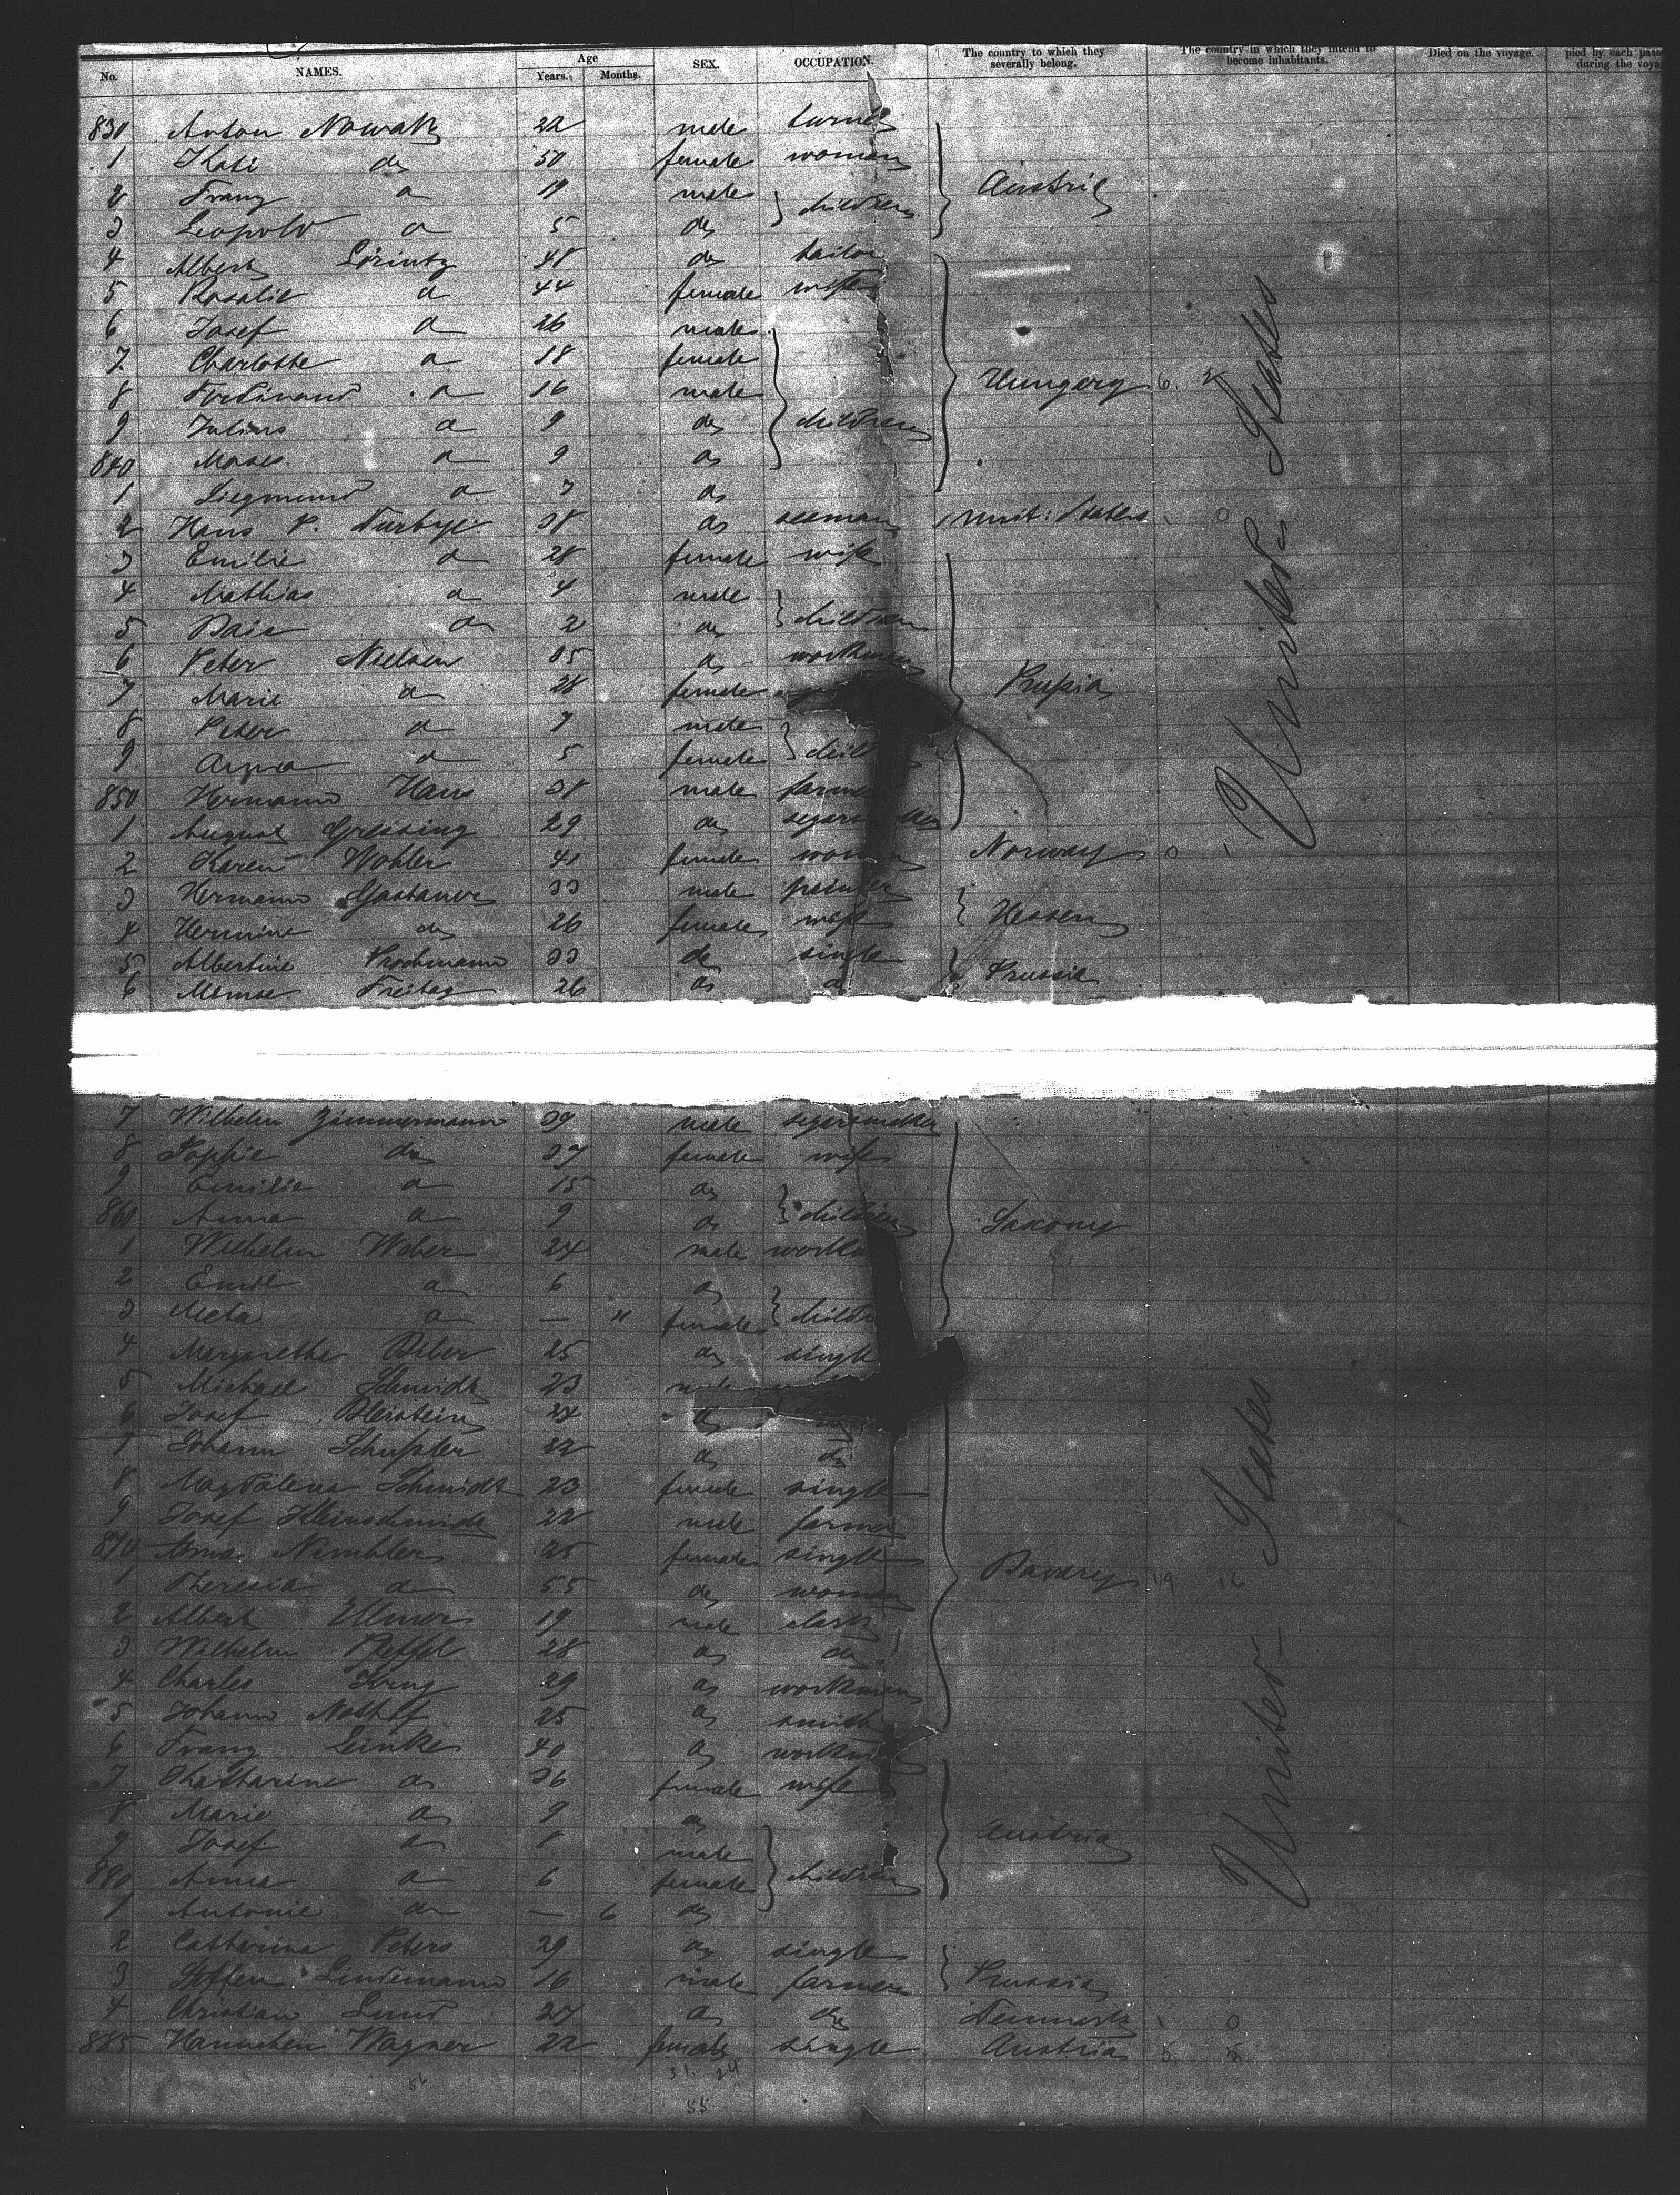 No. NAMES. Age Years. Months. SEX. OCCUPATION. The country to which they severally belong. The country in which they intend to become inhabitants. Died on the voyage. pied by each pass during the voya
830 Anton Nowak 22 male turner
1 Kati do 50 female woman
2 Franz do 19 male children Austria
3 Leopold do 5 do
4 Albert Lörintz 48 do tailor
5 Rosalie do 44 female wife
6 Josef do 26 male
7 Charlotte do 18 female
8 Ferdinand do 16 male Hungary
9 Julius do 9 do children
840 Moses do 9 do
1 Siegmund do 7 do
2 Hans P. 38 do seaman Unit: States
3 Emilie do 28 female wife
4 Mathias do 4 male
5 do 2 do children
6 Peter Nielsen 35 do workman
7 Marie do 28 female Prussia
8 Peter do 7 male
9 do 5 female child
850 Hermann Hans 38 male farmer
1 August Greising 29 do
2 Karen Wohler 41 female woman Norway
3 Hermann 33 male painter
4 Hermine do 26 female wife Hessen
5 Albertine Prochmann 33 do single
6 Freitag 26 do do Prussia
United States
7 Wilhelm Zimmermann 39 male segarmaker
8 Sophie do 37 female wife
9 Emilie do 15 do
860 Anna do 9 do children Saxony
1 Wilhelm Weber 24 male workm
2 Emil do 6 do
3 Meta do — " female childr
4 Margarethe 25 do single
5 Michael Schmidt 23 male
6 Josef Bleistein 24 do
7 Johann Schussler 22 do do
8 Magdalena Schmidt 23 female single
9 Josef Kleinschmidt 22 male farmer
870 Nimbler 25 female single
1 Theresia do 55 do woman Bavary
2 Albert Ellmer 19 male clark
3 Wilhelm 28 do do
4 Charles 29 do workman
5 Johann Nothof 25 do smith
6 Franz Leinke 40 do workm
7 Chatharine do 36 female wife
8 Marie do 9 do
9 Josef do 8 male Austria
880 Anna do 6 female children
1 Antonie do — 6 do
2 Catherina Peters 29 do single
3 Steffen Lindemann 16 male farmer Prussia
4 Christian Lund 27 do do Denmark
885 Hannchen Wagner 22 female single Austria
United States
31 24
55